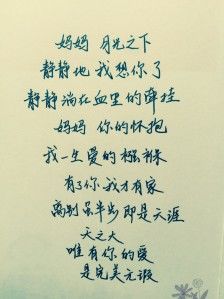 妈妈 月光之下
静静地 我想你了
静静淌在血里的牵挂
妈妈 你的怀抱
我一生爱的襁褓
有了你 我才有家
离别虽半步 即是天涯
天之大
唯有你的爱
是完美无瑕